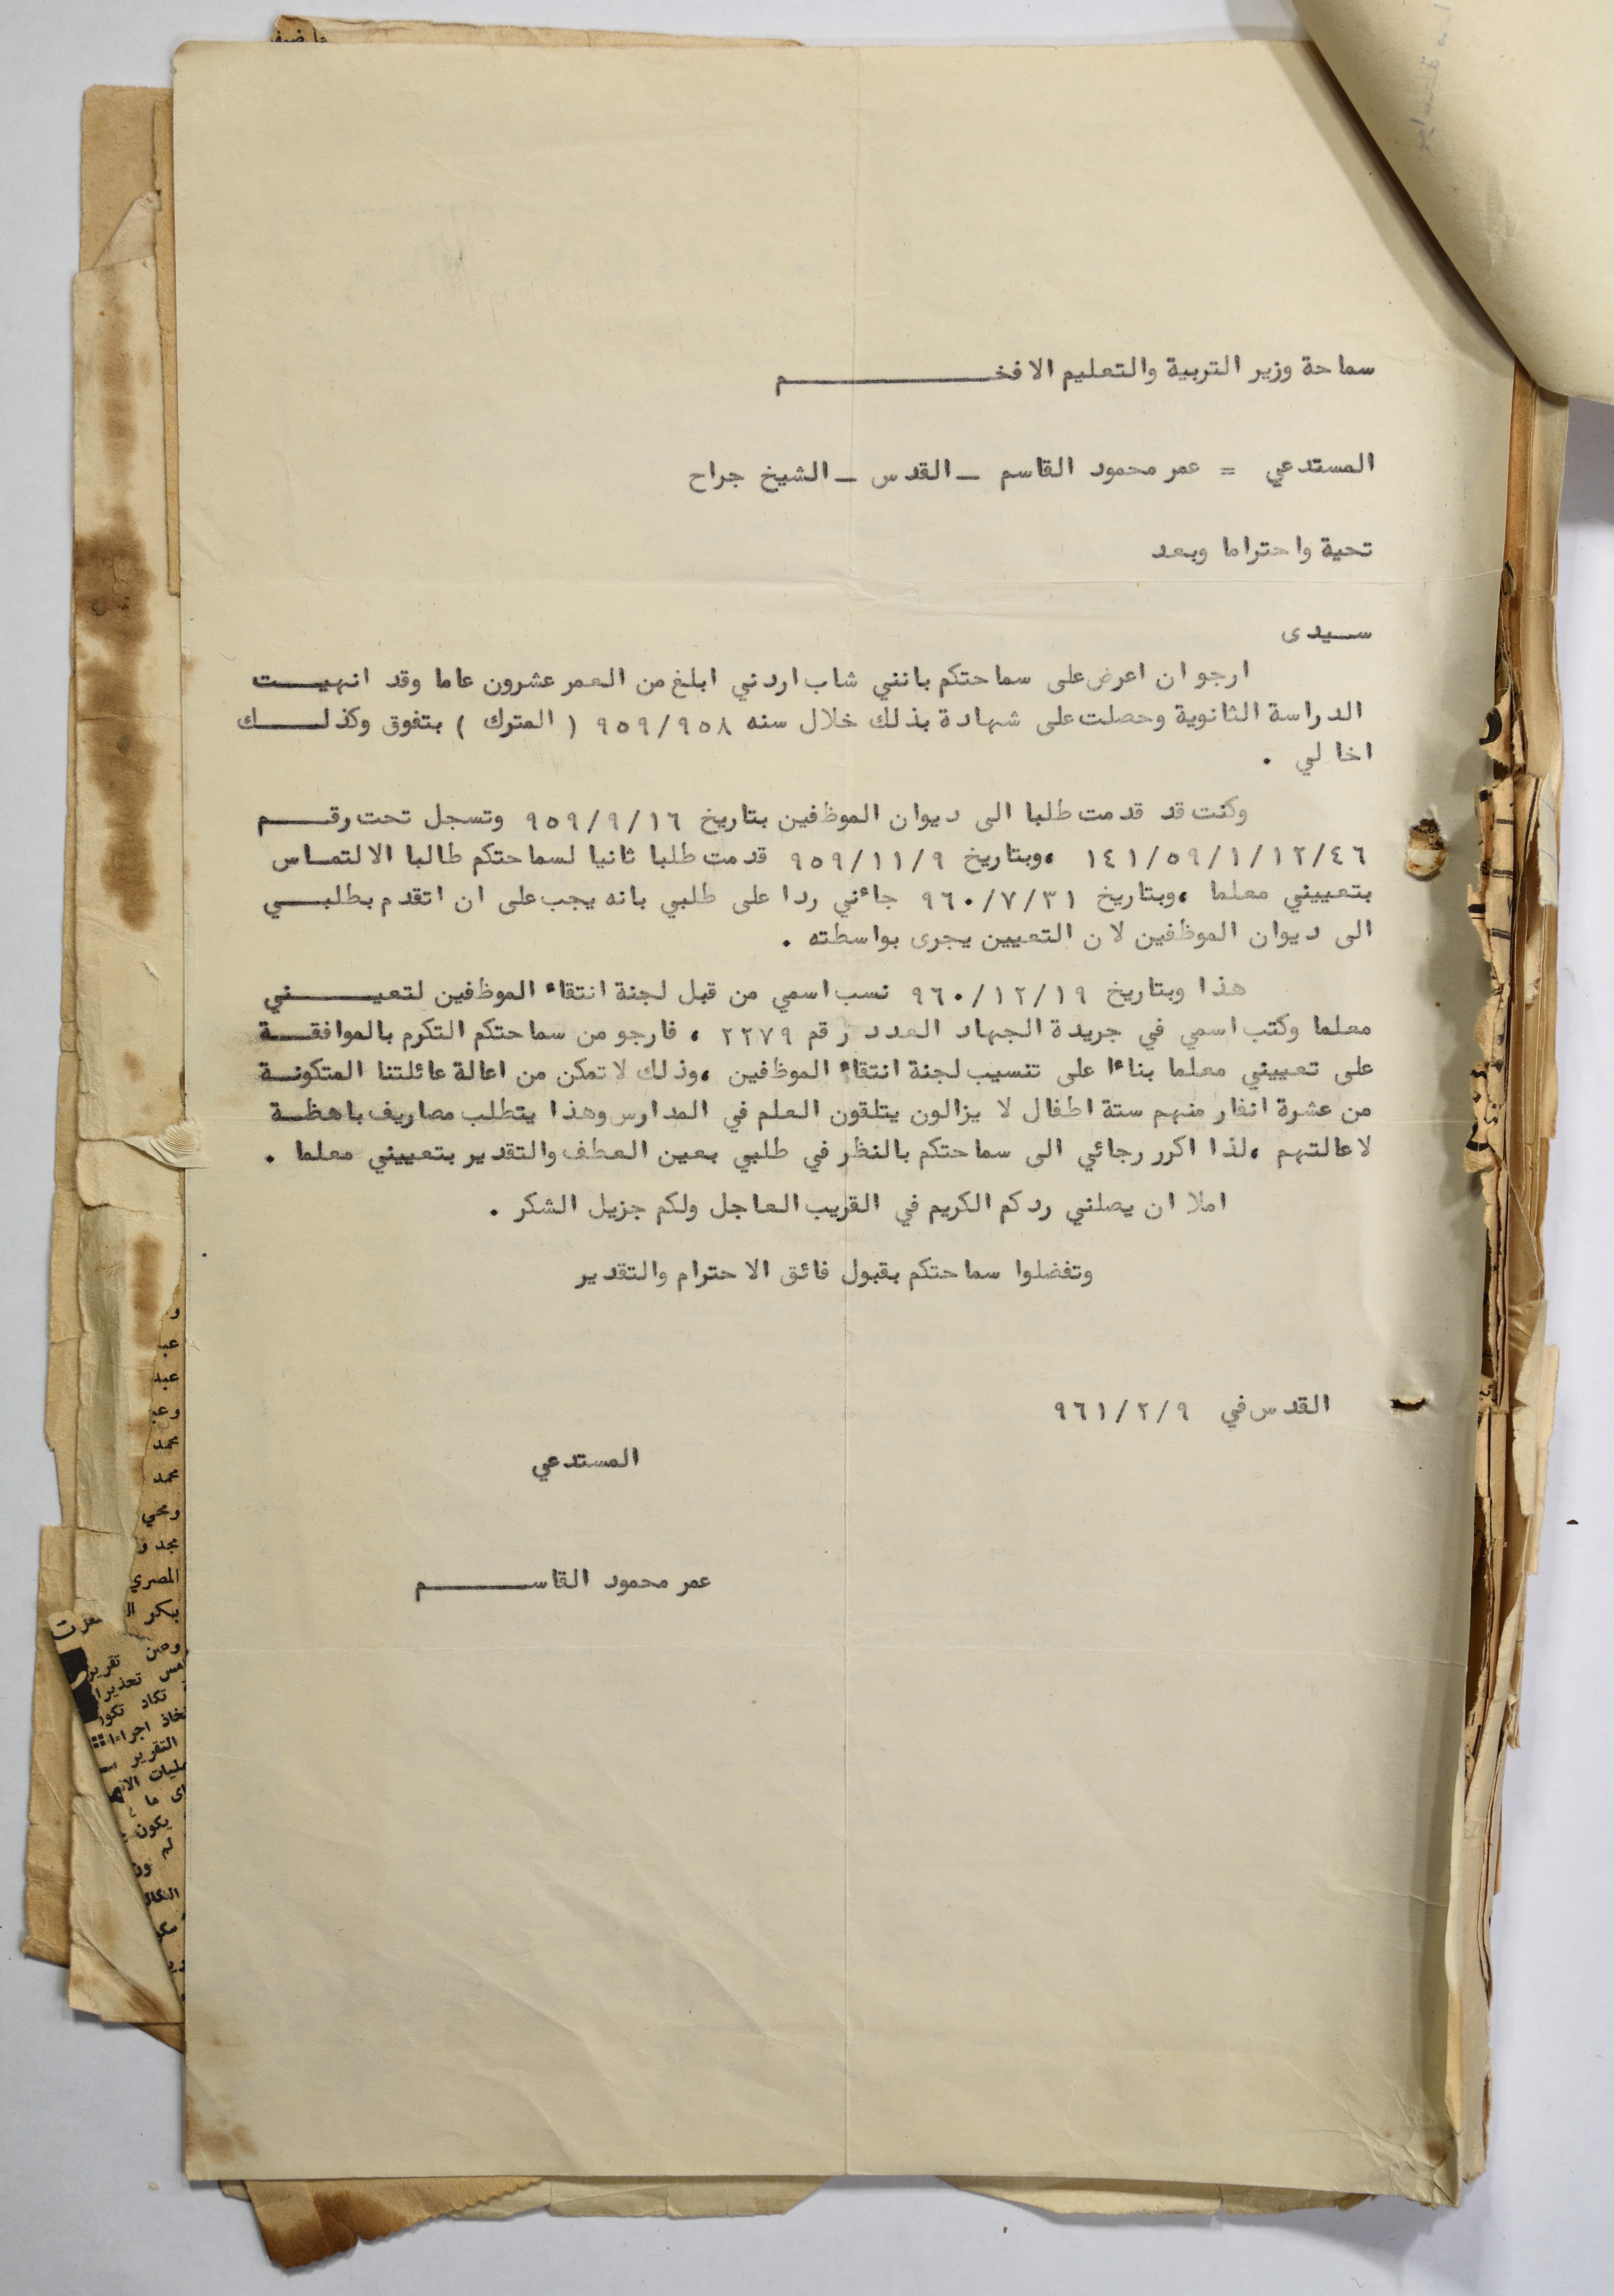 سماحة وزير التربية والتعليم الافخـــــــــــم
المستدعي = عمر محمود القاسم ــ القدس ــ الشيخ جراح
تحية واحتراما وبعد
ســيدى
ارجو ان اعرض على سماحتكم بانني شاب اردني ابلغ من العمر عشرون عاما وقد انهيـــت
الدراسة الثانوية وحصلت على شهادة بذلك خلال سنه ٩٥٩/٩٥٨ ( المترك ) بتفوق وكذلــــك
اخا لي .
وكنت قد قدمت طلبا الى ديوان الموظفين بتاريخ ٩٥٩/٩/١٦ وتسجل تحت رقـــم
١٤١/٥٩/١/١٢/٤٦ ،وبتاريخ ٩٥٩/١١/٩ قدمت طلبا ثانيا لسماحتكم طالبا الالتمـاس
بتعييني معلما ،وبتاريخ ٩٦٠/٧/٣١ جائني ردا على طلبي بانه يجب على ان اتقدم بطلبـــي
الى ديوان الموظفين لان التعيين يجرى بواسطته .
هذا وبتاريخ ٩٦٠/١٢/١٩ نسب اسمي من قبل لجنة انتقاء الموظفين لتعيـــــني
معلما وكتب اسمي في جريدة الجهاد العدد رقم ٢٢٧٩ ، فارجو من سماحتكم التكرم بالموافقـــة
على تعييني معلما بناءا على تنسيب لجنة انتقاء الموظفين ،وذلك لاتمكن من اعالة عائلتنا المتكونــة
من عشرة انفار منهم ستة اطفال لا يزالون يتلقون العلم في المدارس وهذا يتطلب مصاريف باهظــة
لاعالتهم ،لذا اكرر رجائي الى سماحتكم بالنظر في طلبي بعين العطف والتقدير بتعييني معلما .
املا ان يصلني ردكم الكريم في القريب العاجل ولكم جزيل الشكر .
وتفضلوا سماحتكم بقبول فائق الاحترام والتقدير
القدس في ٩٦١/٢/٩
المستدعي
عمر محمود القاســـــم
عبد
محمد
محمد
المصري
تقرير
تكاد
التقرير
يكون